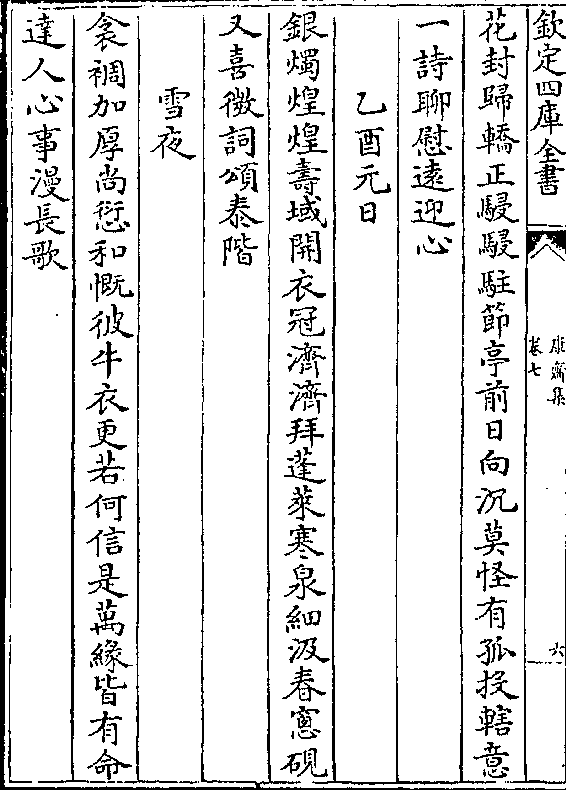 欽定四庫全書
康齋集
卷七
六
花封歸轎正駸駸駐節亭前日向沉莫怪有孤投轄意
一詩聊慰遠迎心
乙酉元日
銀燭煌煌壽域開衣冠濟濟拜蓬萊寒泉細汲春窻硯
又喜微詞頌泰階
雪夜
衾裯加厚尚愆和慨彼牛衣更若何信是萬緣皆有命
達人心事漫長歌